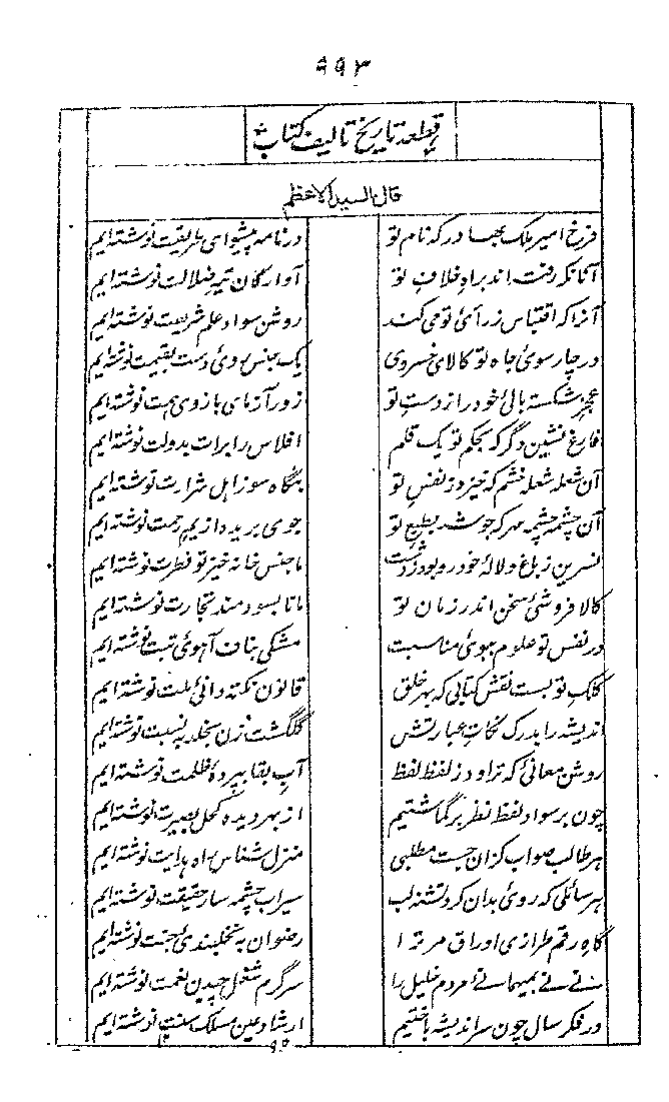 ۹۹۳
قطعہ تاریخ تالیف کتاب
قال السید الاعظم
فرخ امیر ملک بہادر کہ نام تو در نامہ پیشوای طریقت نوشتہ ایم
آنانکہ رفتہ اند براہ خلاف تو آوارگان تیہ ضلالت نوشتہ ایم
آنرا کہ اقتباس ز رائ تو می کند روشن سواد علم شریعت نوشتہ ایم
در چار سوئ جاہ تو کالای خسروی یک جنس روئ دست بقیمت نوشتہ ایم
عجز شکستہ بالئ خود را ز دست تو زور آزمای بازوی ہمت نوشتہ ایم
فارغ نشین دگر کہ بحکم تو یک قلم افلاس را برات بدولت نوشتہ ایم
آن شعلہ شعلہ خشم کہ خیزد ز نفس تو بنگاہ سوز اہل شرارت نوشتہ ایم
آن چشمہ چشمہ مہر کہ جوشد بطبع تو جوی بریدہ از یم رحمت نوشتہ ایم
نسرین ز باغ و لالۂ خودرو بود ز دشت ما جنس خانہ خیز تو فطرت نوشتہ ایم
کالا فروشئ سخن اندر زمان تو ما تا بسودمند تجارت نوشتہ ایم
در نفس تو علوم ببوئ مناسبت مشکی بناف آہوئ تبت نوشتہ ایم
کلک تو بست نقش کتابی کہ بہر خلق قانون نکتہ دانئ ملت نوشتہ ایم
اندیشہ را بدرک نکات عبارتش گلگشت زن بخلد بہ نسبت نوشتہ ایم
روشن معانئ کہ تراود ز لفظ لفظ آب بقا بپردۂ ظلمت نوشتہ ایم
چون بر سواد لفظ نظر بر گماشتیم از بہر دیدہ کحل بصیرت نوشتہ ایم
ہر طالب صواب کزان جست مطلبی منزل شناس راہ ہدایت نوشتہ ایم
ہر سائلی کہ روئ بدان کرد تشنہ لب سیراب چشمہ سار حقیقت نوشتہ ایم
گاہ رقم طرازی اوراق مر ترا رضوان بہ نخلبندئ جنت نوشتہ ایم
نے نے بمیہمانئ مردم خلیل را سرگرم شغل چیدن نعمت نوشتہ ایم
در فکر سال چون سر اندیشہ باختیم ارشاد عین مسلک سنت نوشتہ ایم